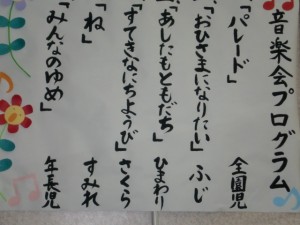 音楽会プログラム
「パレード」 全園児
「おひさまになりたい」 ふじ
「あしたもともだち」 ひまわり
「すてきなにちようび」 さくら
「ね」 すみれ
「みんなのゆめ」 年長児